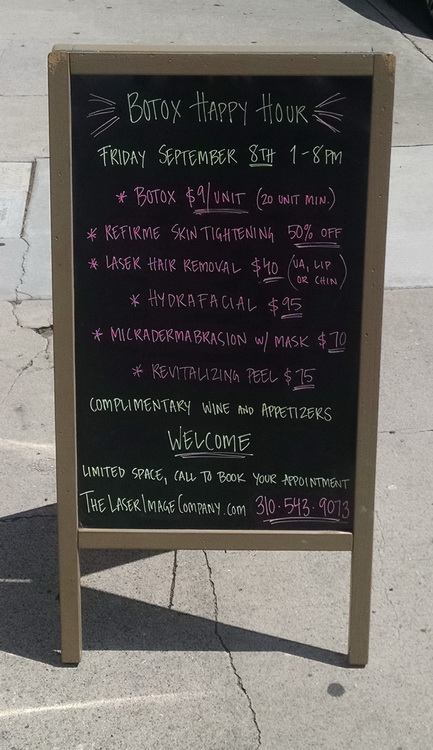 BOTOX HAPPY HOUR
FRIDAY SEPTEMBER 8TH 1-8PM
* BOTOX $9/UNIT (20 UNIT MIN.)
* REFIRME SKIN TIGHTENING 50% OFF
* LASER HAIR REMOVAL $40 (UA, LIP OR CHIN)
* HYDRAFACIAL $95
* MICRADERMABRASION W/ MASK $70
* REVITALIZING PEEL $75
COMPLIMENTARY WINE AND APPETIZERS
WELCOME
LIMITED SPACE, CALL TO BOOK YOUR APPOINTMENT
THELASERIMAGECOMPANY.COM 310·543·9073